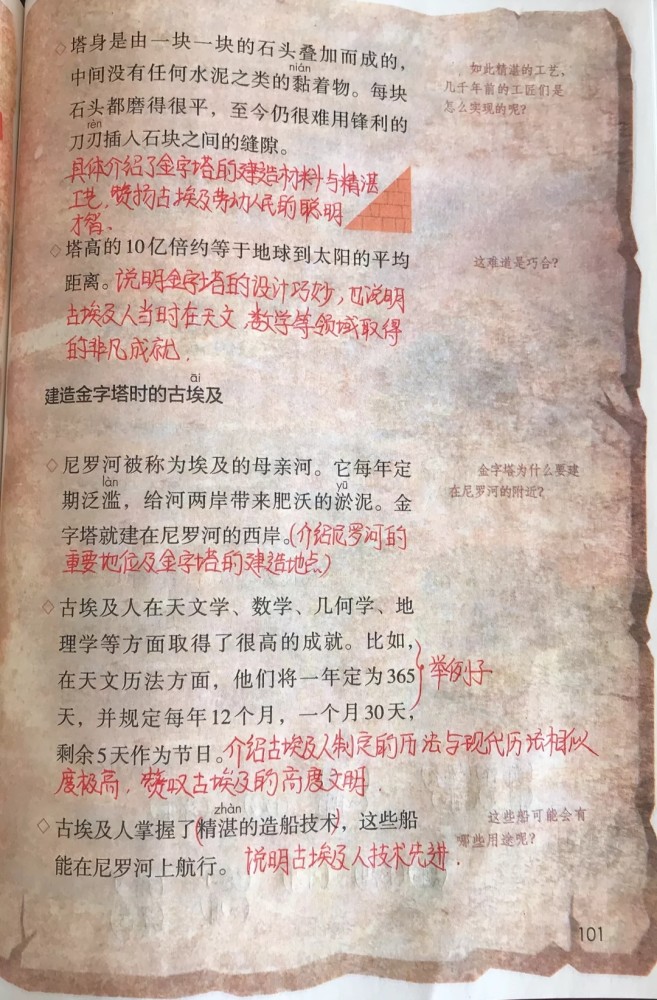 ◇塔身是由一块一块的石头叠加而成的，
nián
中间没有任何水泥之类的黏着物。每块
石头都磨得很平，至今仍很难用锋利的
rèn
刀刃插入石块之间的缝隙。
如此精湛的工艺，
几千年前的工匠们是
怎么实现的呢？
具体介绍了金字塔的建造材料与精湛
工艺，赞扬古埃及劳动人民的聪明
才智.
◇塔高的10亿倍约等于地球到太阳的平均
距离。说明金字塔的设计巧妙，也说明
古埃及人当时在天文、数学等领域取得
的非凡成就.
这难道是巧合？
āi
建造金字塔时的古埃及
◇尼罗河被称为埃及的母亲河。它每年定
làn yū
期泛滥，给河两岸带来肥沃的淤泥。金
字塔就建在尼罗河的西岸。(介绍尼罗河的
重要地位及金字塔的建造地点)
金字塔为什么要建
在尼罗河的附近？
◇古埃及人在天文学、数学、几何学、地
理学等方面取得了很高的成就。比如，
在天文历法方面，他们将一年定为365
天，并规定每年12个月，一个月30天，
举例子
剩余5天作为节日。介绍古埃及人制定的历法与现代历法相似
度极高，赞叹古埃及的高度文明.
zhàn
◇古埃及人掌握了(精湛的造船技术)，这些船
能在尼罗河上航行。说明古埃及人技术先进.
这些船可能会有
哪些用途呢？
101